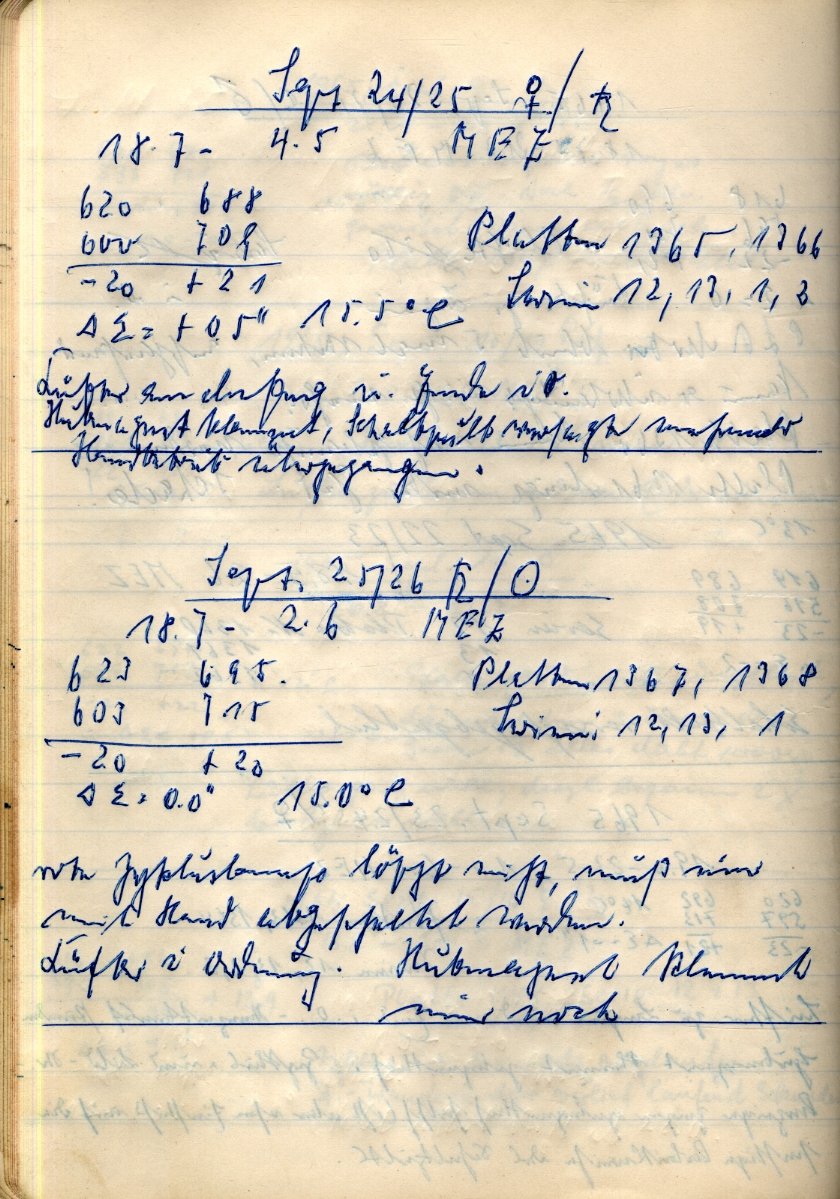 Sept 24/25 ♀/♄
18.7 - 4.5 MEZ
620 688
600 709
-20 +21
Platten 1365, 1366
Serien 12, 13, 1, 3
ΔΣ = +0.5" 15.5°C
Lüfter am u. Ende i.O.
Hubmagnet klemmt, Schaltpult versagte
Handbetrieb übergegangen.
Sept. 25/26 ♄/☉
18.7 - 2.6 MEZ
623 695.
603 715
-20 +20
Platten 1367, 1368
Serien: 12, 13, 1
ΔΣ = 0.0" 15.0°C
rote Zykluslampe löscht nicht, muß
mit Hand abgeschaltet werden.
Lüfter i Ordnung. Hubmagnet klemmt
noch